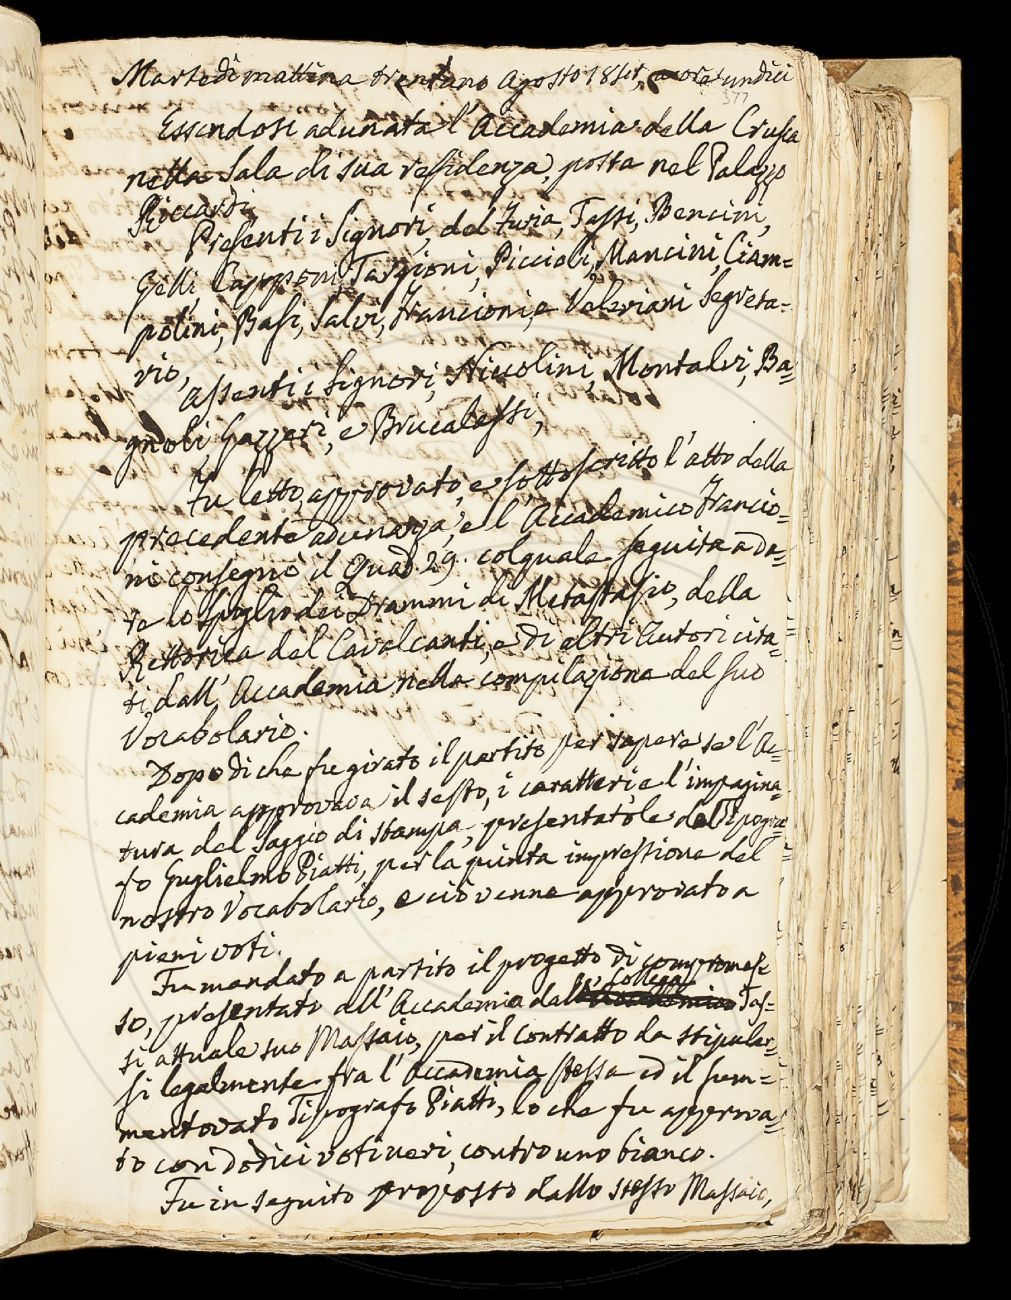 Martedì mattina trentuno Agosto 18 a ore undici
377
Essendosi adunata l'Accademia della Crusca
nella Sala di sua residenza, posta nel Palazzo
Riccardi
Presenti i Signori, del Furia, Tassi, Bencini,
Zelli, Capponi, Targioni, Piccioli, Mancini, Ciam=
polini, Basi, Salvi, Francioni, e Valeriani Segreta=
rio,
assenti i Signori, Niccolini, Montalvi, Ba=
gnoli, Gazzeri, e Brucalassi,
Fu letto, approvato, e sottoscritto l'atto della
precedente adunanza, e l'Accademico Francio=
ni consegnò il Quad. 29. col quale seguita a da=
re lo spoglio dei Drammi di Metastasio, della
Rettorica del Cavalcanti, e di altri Autori cita=
ti, dall'Accademia nella compilazione del suo
Vocabolario.
Dopo di che fu girato il partito per sapere se l'Ac=
cademia approvava il sesto, i caratteri e l'impagina=
tura del saggio di stampa, presentatole dal Tipogra=
fo Guglielmo Piatti, per la quinta impressione del
nostro Vocabolario, e ciò venne approvato a
pieni voti.
Fu mandato a partito il progetto di compromes=
so, presentato all'Accademia dal Collega Tas=
si attuale suo Massaio, per il contratto da stipular=
si legalmente fra l'Accademia stessa ed il sum=
mentovato Tipografo Piatti, lo che fu approva=
to con dodici voti neri, contro uno bianco.
Fu in seguito proposto dallo stesso Massaio,